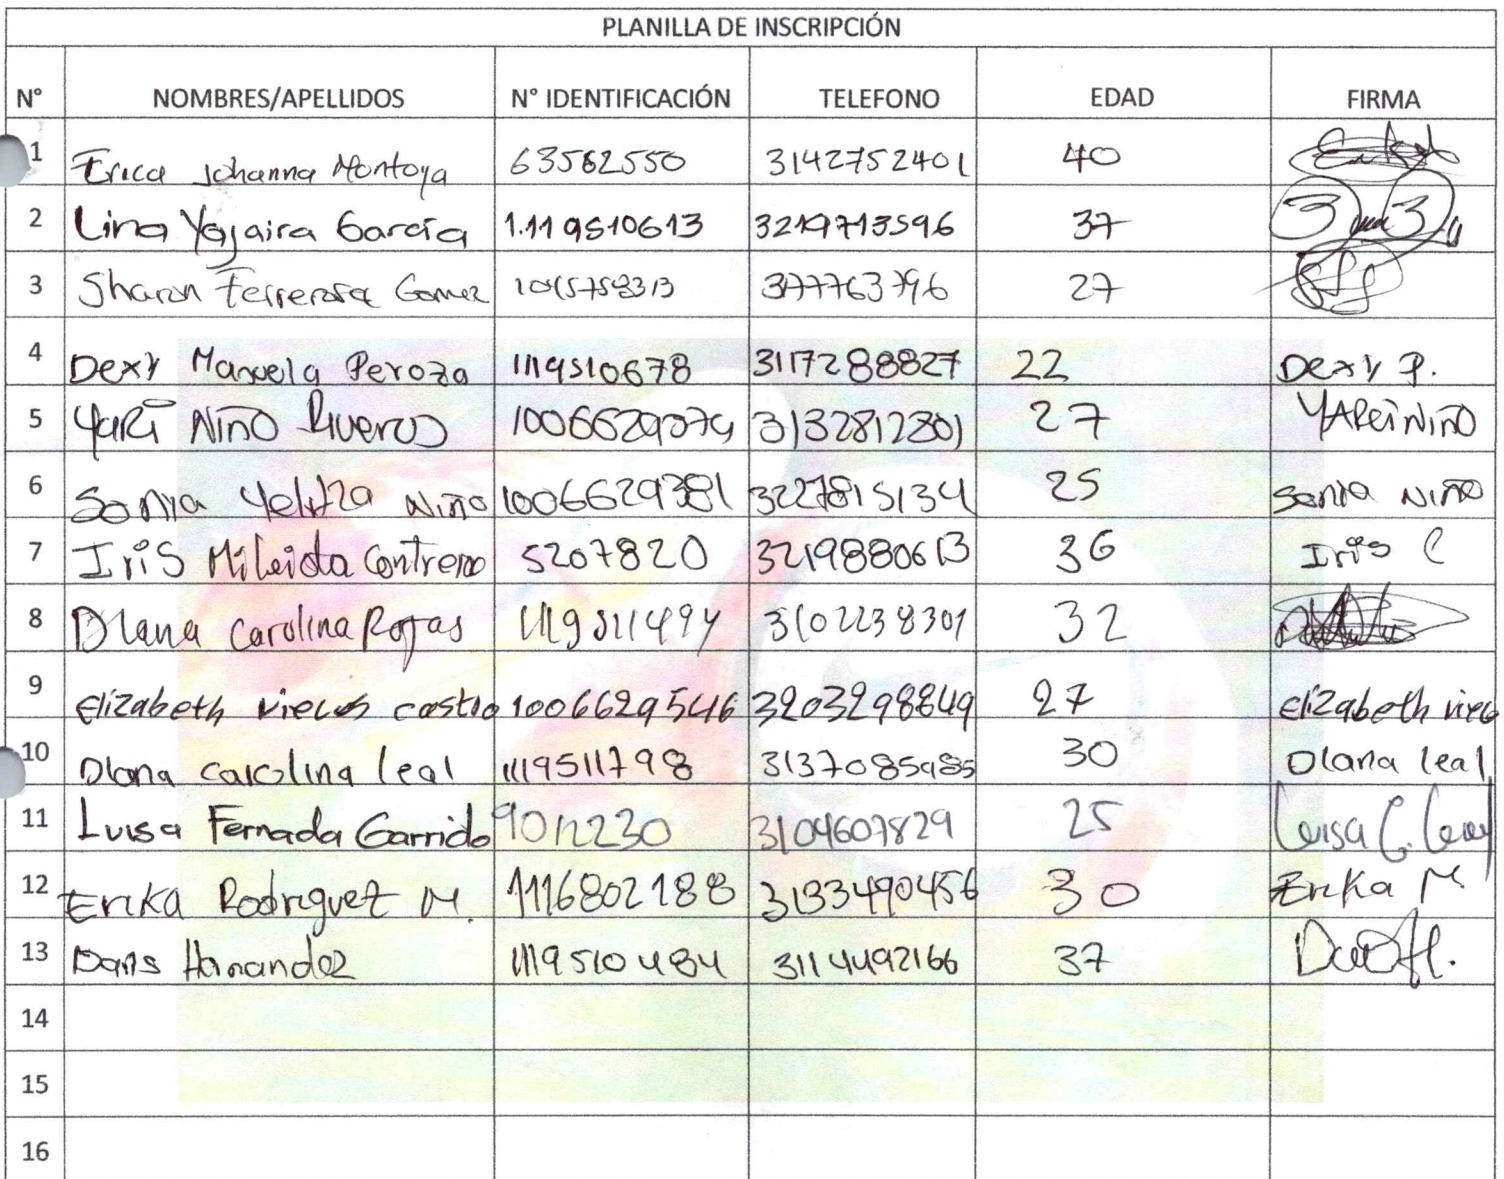 PLANILLA DE INSCRIPCIÓN
N° NOMBRES/APELLIDOS N° IDENTIFICACIÓN TELEFONO EDAD FIRMA
1 Erica Johanna Montoya 63562550 3142752401 40
2 Lina Yajaira García 1.119510613 3219713596 37
3 Sharon Gomez 27
4 Dexy Manuela Peroza 1119510678 3117288827 22 Dexy P.
5 Yari Niño Riveros 1006629074 3132812801 27 Niño
6 Sonia Yelitza Niño 1006629381 3227815134 25 Sonia Niño
7 Iris Mileida Contreras 5207820 3219880613 36 Iris C
8 Diana Carolina Rojas 1119511494 3102238301 32
9 Elizabeth castro 1006629546 3203298849 27 Elizabeth
10 Diana Carolina leal 1119511798 3137085985 30 Diana leal
11 Luisa Fernada Garrido 9012230 3104607829 25 Luisa G.
12 Erika Rodriguez M. 1116802188 3133490456 30 Erika M.
13 Daris Hernandez 1119510484 3114492166 37
14
15
16